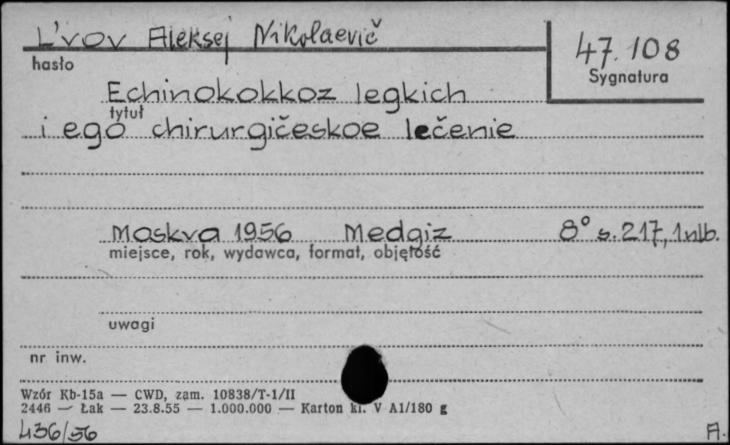 L'vov Aleksej Nikolaevič
hasło
47.108
Sygnatura
Echinokokkoz legkich
tytuł
i ego chirurgičeskoe lečenie
Moskva 1956 Medgiz 8° s. 217, 1 nlb.
miejsce, rok, wydawca, format, objętość
uwagi
nr inw.
Wzór Kb-15a — CWD, zam. 10838/T-1/II
2446 — Łak — 23.8.55 — 1.000.000 — Karton kl. V A1/180 g
436/56
A.